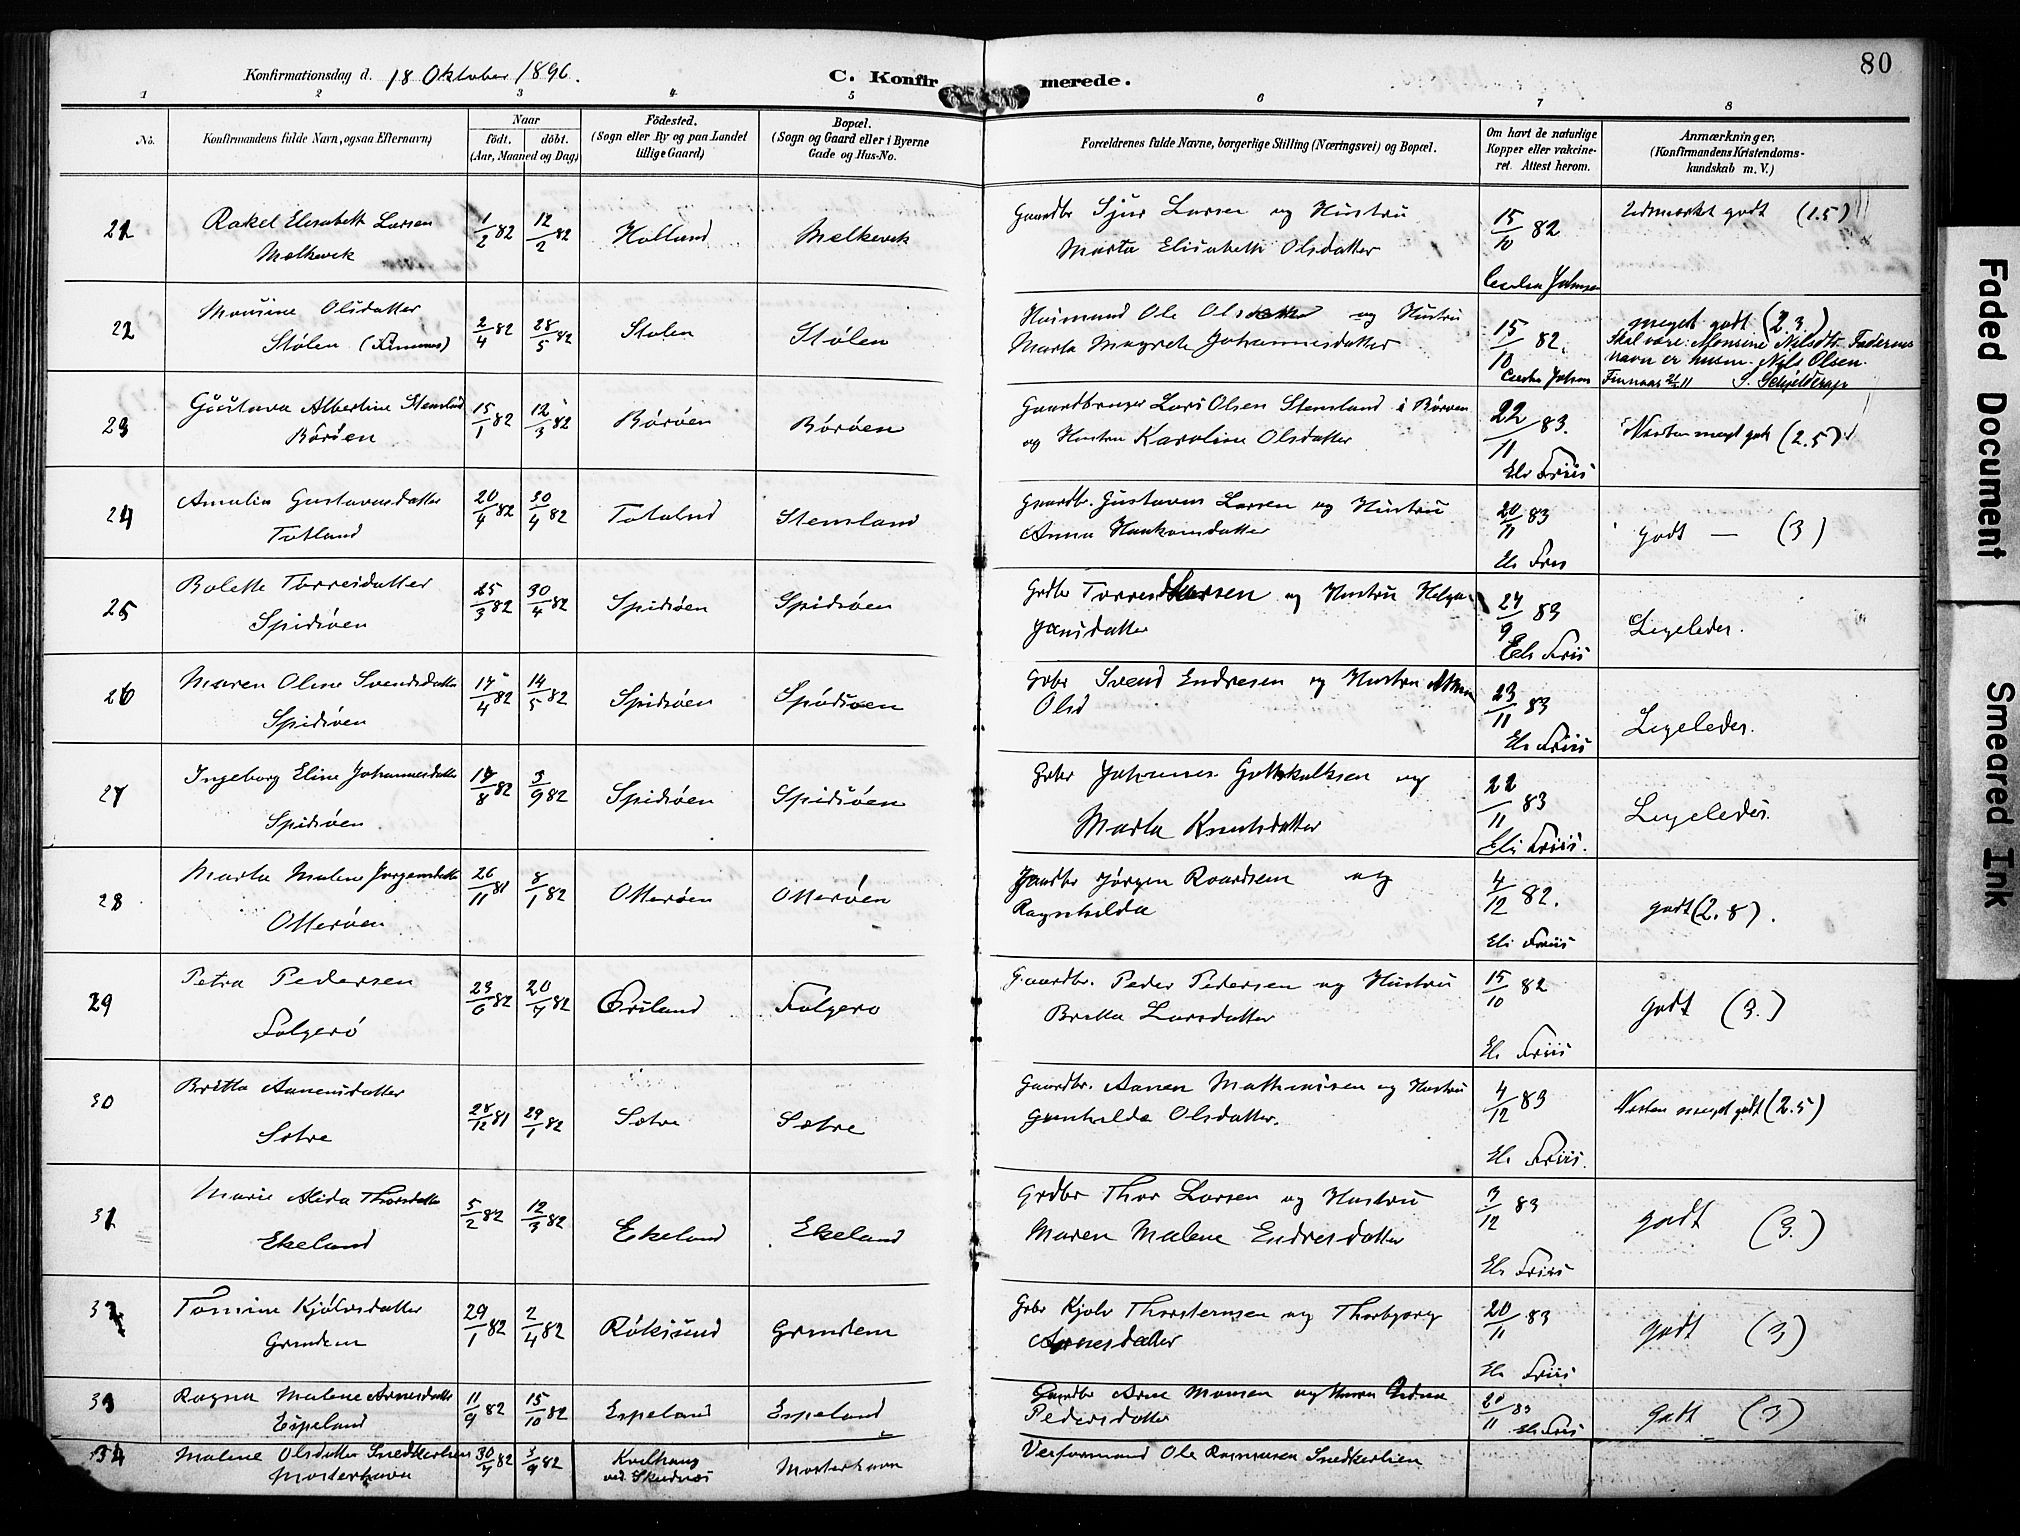 80
Konfirmationsdag d. 18 Oktober 1896.
C. Konfirmerede.
1 2 3 4 5 6 7 8
No.
Konfirmandens fulde Navn, ogsaa Efternavn)
Naar
födt. döbt.
(Aar, Maaned og Dag)
Födested.
(Sogn eller By og paa Landet
tillige Gaard)
Bopæl.
(Sogn og Gaard eller i Byerne
Gade og Hus-No.
Forældrenes fulde Navne, borgerlige Stilling (Næringsvei) og Bopæl.
Om havt de naturlige
Kopper eller vakcine-
ret. Attest herom.
Anmærkninger.
(Konfirmandens Kristendoms-
kundskab m. V.)
21 Rakel Elisabeth Larsen
Melkevik
1/2 82 12/2 82 Holland Melkevik
Gaardbr Sjur Larsen og Hustru
Marta Elisabeth Olsdatter
15/10 82
Udmærket godt (1.5)
22 Monsine Olsdatter
Stølen (Finnaas)
2/4 82 28/5 82 Stølen Stølen
Husmand Ole og Hustru
Marta Magrete Johannesdatter
15/10 82.
meget godt (2.3.)
Skal være: Monsine Nilsdtr. Faderens
navn er husm. Nils Olsen.
Finnaas 21/11 S. Schjelderup
23 Gustava Albertine Stemland
Börøen
15/1 82 12/3 82 Börøen Börøen
Gaardbruger Lars Olsen Stemland i Børøen
og Hustru Karoline Olsdatter
22/11 83.
Els Friis
Næsten meget godt (2.5)
24 Amalia Gustavasdatter
Totland
20/4 82 30/4 82 Totland Stemland
Gaardbr. Gustavus Larsen og Hustru
Anna Haakonsdatter
20/11 83
Els Friis
godt — (3)
25 Bolette Torresdatter
Spidsöen
25/3 82 30/4 82 Spidsöen Spidsöen
Grdbr Torres Larsen og Hustru Helga
Jansdatter
24/9 83
Els Friis
Ligeledes.
26 Maren Oline Svendsdatter
Spidsöen
14/5 82 Spidsöen Spidsöen
Grbr Svend Endresen og Hustru
Olsd
23/11 83
Els Friis
Ligeledes.
27 Ingeborg Eline Johannesdatter
Spidsöen
3/9 82 Spidsöen Spidsöen
Grbr Johannes Gottskalksen og
Marta Knutsdatter
22/11 83
Els Friis.
Ligeledes.
28 Marta Malene Jørgensdatter
Otterøen
26/11 81 8/1 82 Otterøen Otterøen
Gaardbr Jørgen Roardsen og
Ragnhilda
4/12 82.
Els Friis
godt (2.8).
29 Petra Pedersen
Folgerö
23/6 82 20/7 82 Folgerö
Gaardbr. Peder Pedersen og Hustru
Britta Larsdatter
15/10 82
Els Friis
godt (3.)
30 Britta Aanensdatter
Sætre
28/12 81 29/1 82 Sætre Sætre
Gaardbr. Aanen Mathiasen og Hustru
Gunhilda Olsdatter.
4/12 83
Els Friis.
Næsten meget godt (2.5)
31 Marie Alida Thorsdatter
Ekeland
5/2 82 12/3 82 Ekeland Ekeland
Grdbr Thor Larsen og Hustru
Maren Malene Endresdatter
3/12 83
Els Friis
godt (3.)
32 Tomine Kjölvsdatter
Grindem
29/1 82 2/4 82 Röksund Grindem
Grbr Kjølv Thorsteinsen og Thorbjørg
Arnesdatter
20/11 83
Els Friis
godt (3)
33 Ragna Malene Arnesdatter
Espeland
11/9 82 15/10 82 Espeland Espeland
Gaardbr Arne Monsen og
Pedersdatter
20/11 83
Els Friis
godt (3)
34 Malene Olsdatter Snedkerlien
Mosterhavn
30/7 82 3/9 82
ved Skudnæs
Mosterhavn
Verformand Ole Rasmussen Snedkerlien
Faded Document
Smeared Ink